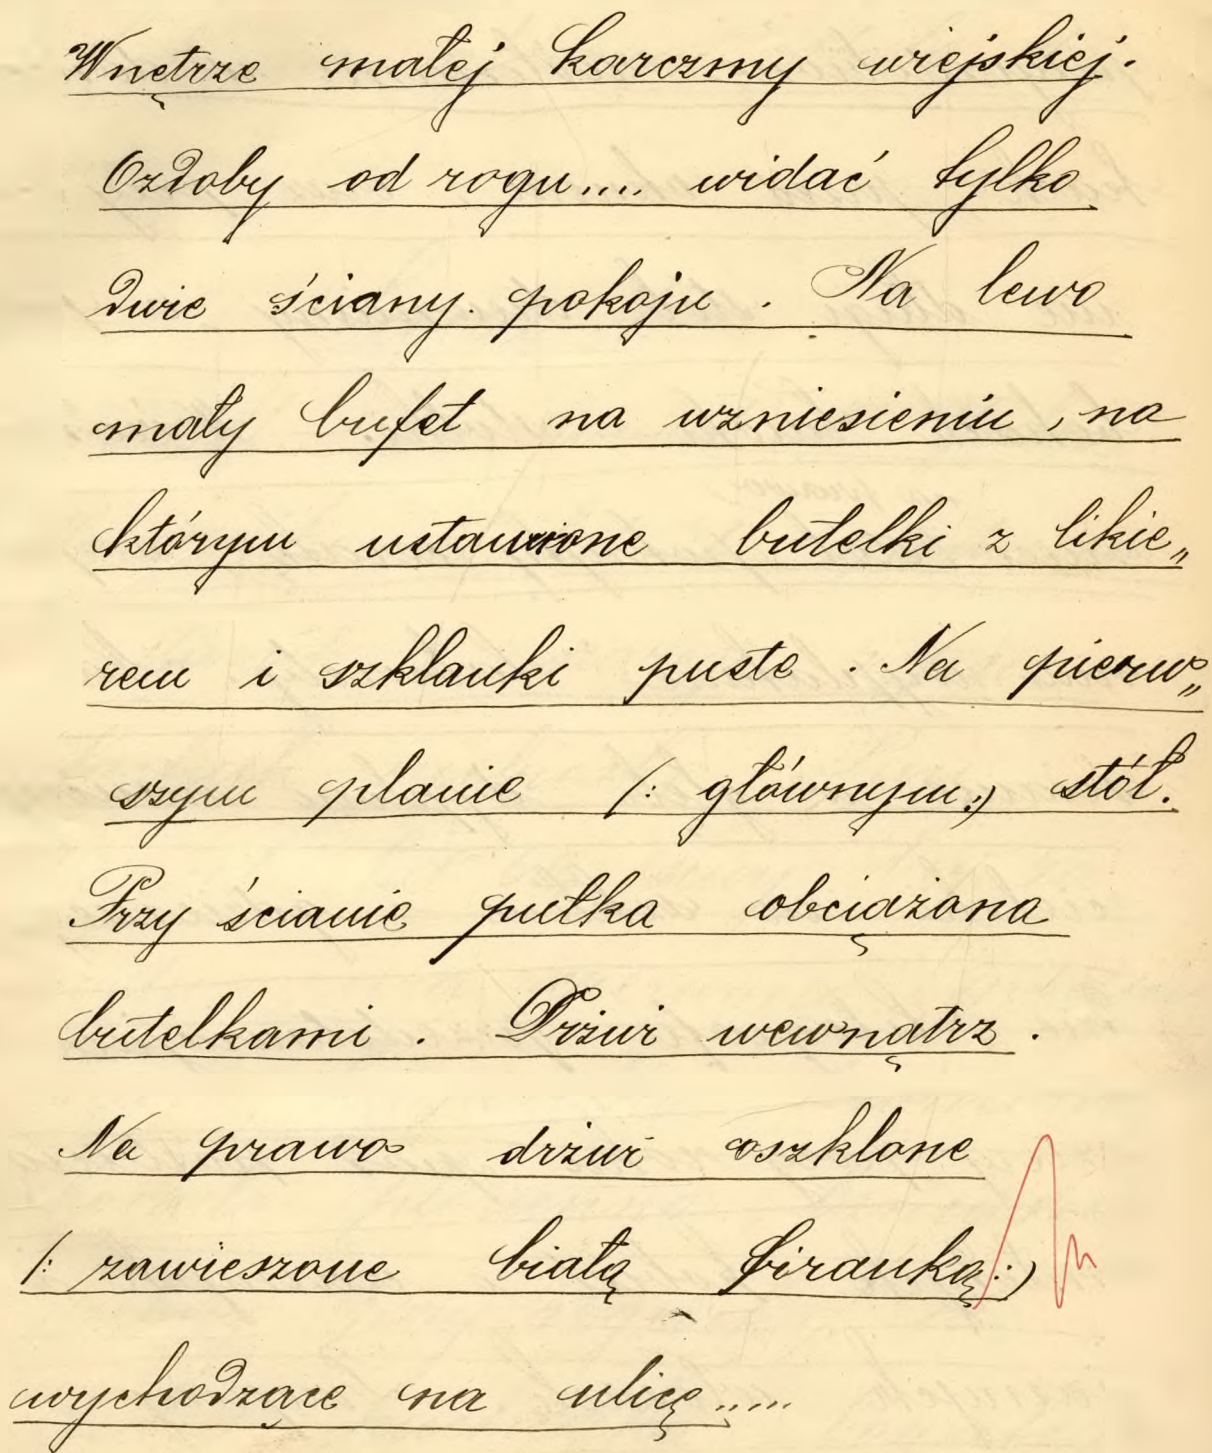 Wnętrze małej karczmy wiejskiej.
Ozdoby od rogu.... widać tylko
dwie ściany. pokoju . Na lewo
mały bufet na wzniesieniu , na
którym ustawione butelki z likie„
rem i szklanki puste . Na pierw„
szym planie (: głównym :) stół.
Przy ścianie pułka obciążona
butelkami . Drżwi wewnątrz .
Na prawo drżwi oszklone
(: zawieszone białą firanką :)
wychodzące na ulicę .....